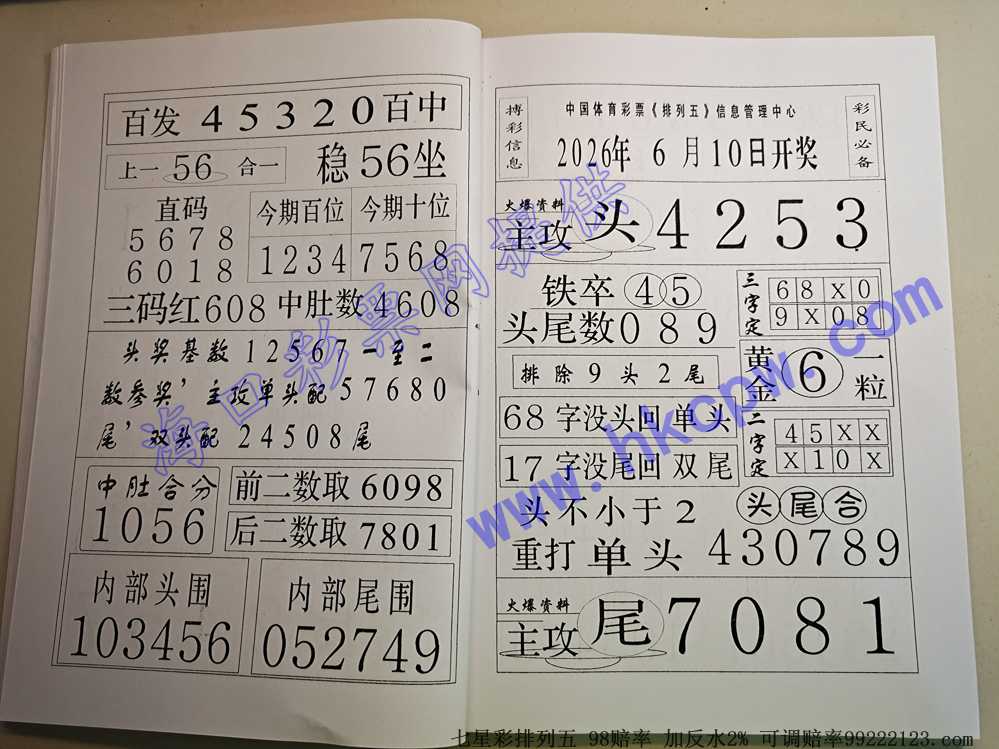 百发 45320 百中
上一 56 合一 稳 56 坐
直码
5678
6018
今期百位 今期十位
1234 7568
三码红608 中肚数4608
头奖基数12567一至二
数参奖’主攻单头配57680
尾’双头配24508尾
中肚合分
1056
前二数取6098
后二数取7801
内部头围
103456
内部尾围
052749
搏彩信息
中国体育彩票《排列五》信息管理中心
2026年 6月10日开奖
彩民必备
火爆资料
主攻 头 4253
铁卒 45
头尾数089
三字定
68X0
9X08
排除9头2尾
黄金 6 一粒
68 字没头回 单头
17 字没尾回 双尾
二字定
45XX
X10X
头不小于2
头尾合
重打 单头 430789
火爆资料
主攻 尾 7081
海口彩票网提供
www.hkcpw.com
七星彩排列五 98赔率 加反水2% 可调赔率99222123.com